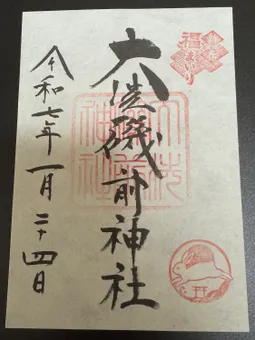 福
まいり
大洗磯前神社
令和七年一月二十四日